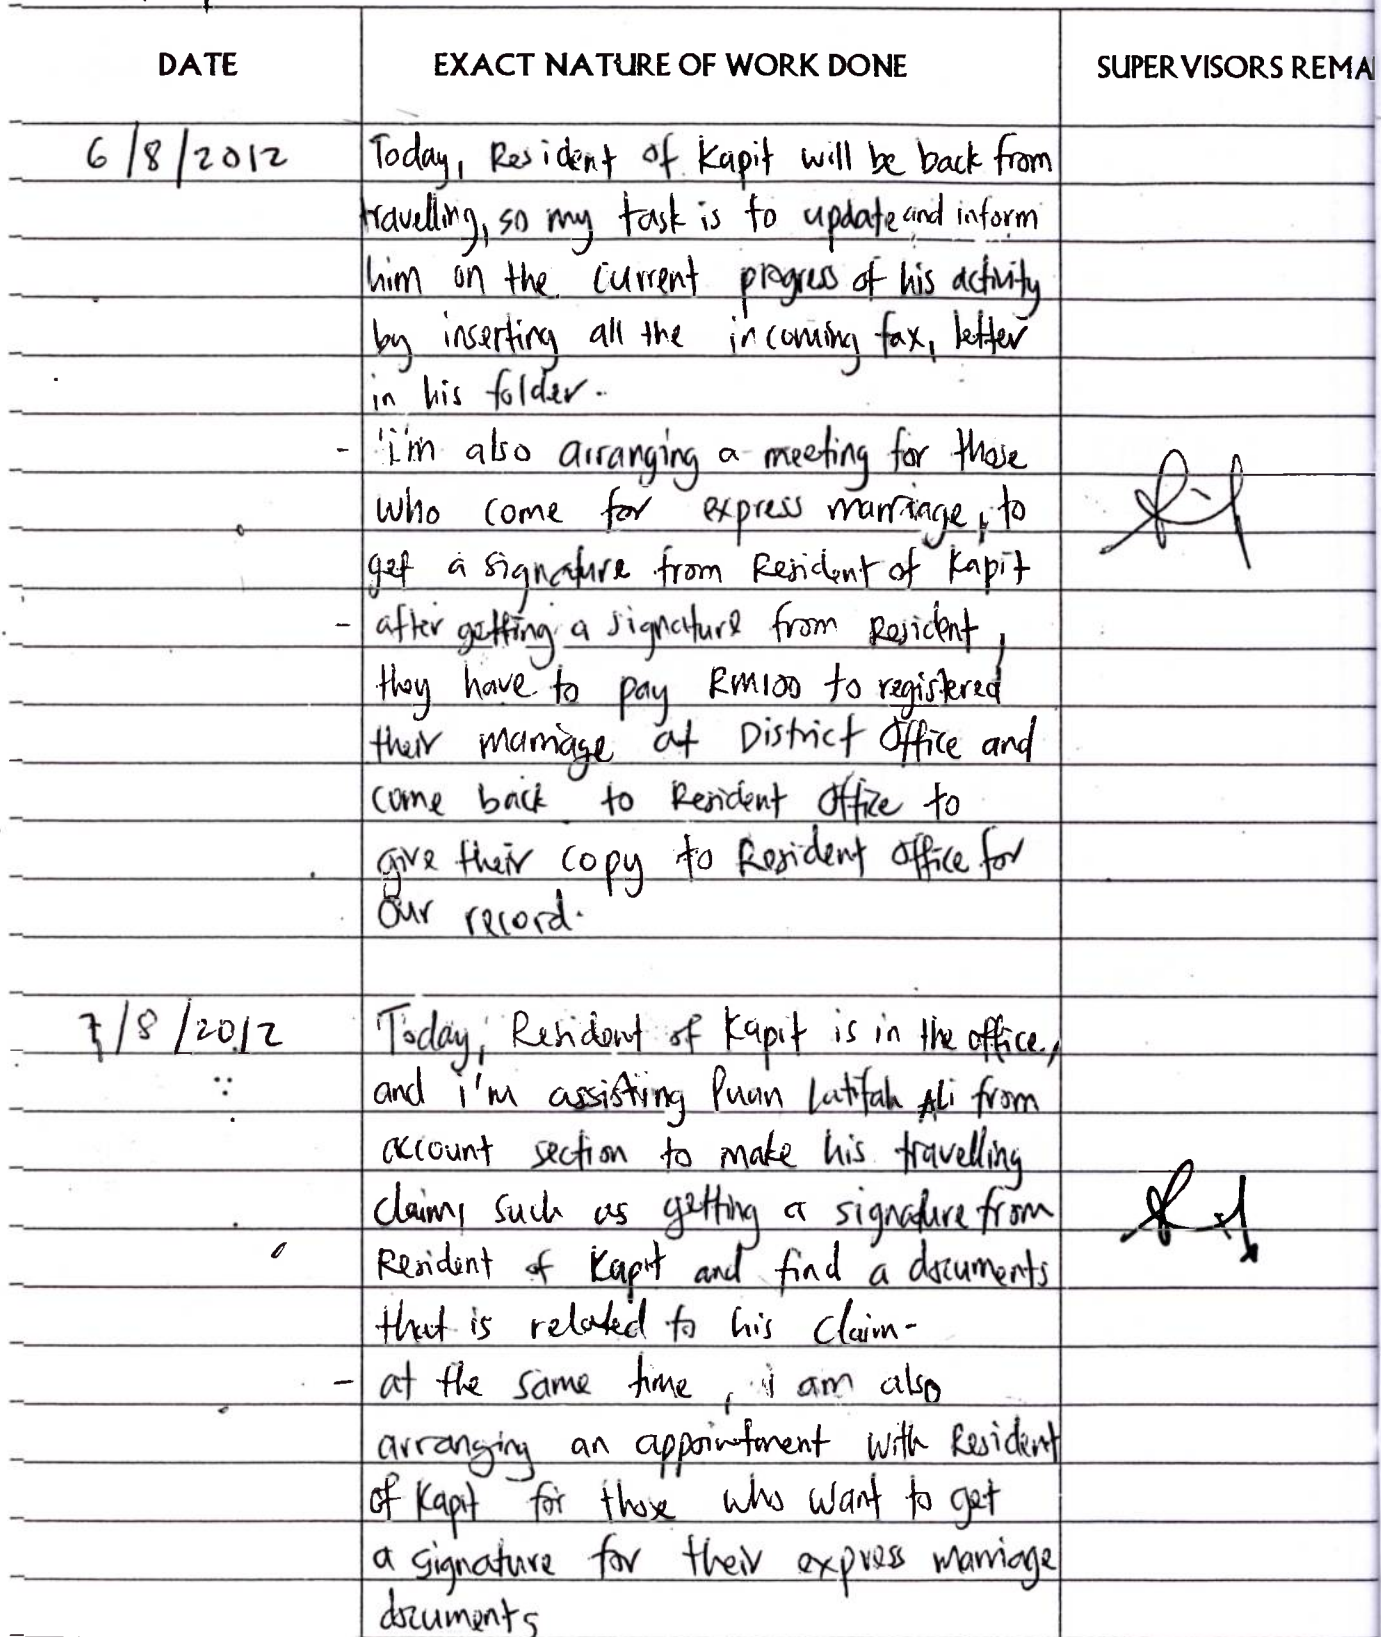 DATE EXACT NATURE OF WORK DONE SUPERVISORS REMA
6/8/2012 Today, Resident of Kapit will be back from
travelling, so my task is to update and inform
him on the current progress of his activity
by inserting all the incoming fax, letter
in his folder.
- i'm also arranging a meeting for those
who come for express marriage, to
get a signature from Resident of Kapit
- after getting a signature from Resident,
they have to pay RM100 to registered
their marriage at District Office and
come back to Resident Office to
give their copy to Resident Office for
Our record.
7/8/2012 Today, Resident of Kapit is in the office,
and i'm assisting Puan Latifah Ali from
account section to make his travelling
claim, such as getting a signature from
Resident of Kapit and find a documents
that is related to his claim-
- at the same time, i am also
arranging an appointment with Resident
of Kapit for those who want to get
a signature for their express marriage
documents